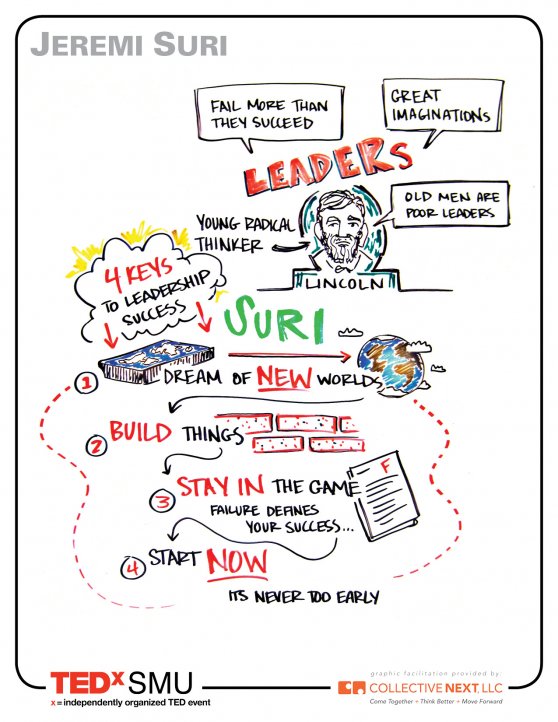 JEREMI SURI
FAIL MORE THAN
THEY SUCCEED
GREAT
IMAGINATIONS
LEADERS
OLD MEN ARE
POOR LEADERS
YOUNG RADICAL
THINKER
LINCOLN
4 KEYS
TO LEADERSHIP
SUCCESS
SURI
1 DREAM OF NEW WORLDS
2 BUILD THINGS
3 STAY IN THE GAME
F
FAILURE DEFINES
YOUR SUCCESS...
4 START NOW
ITS NEVER TOO EARLY
TEDxSMU
x = independently organized TED event
graphic facilitation provided by:
COLLECTIVE NEXT, LLC
Come Together + Think Better + Move Forward